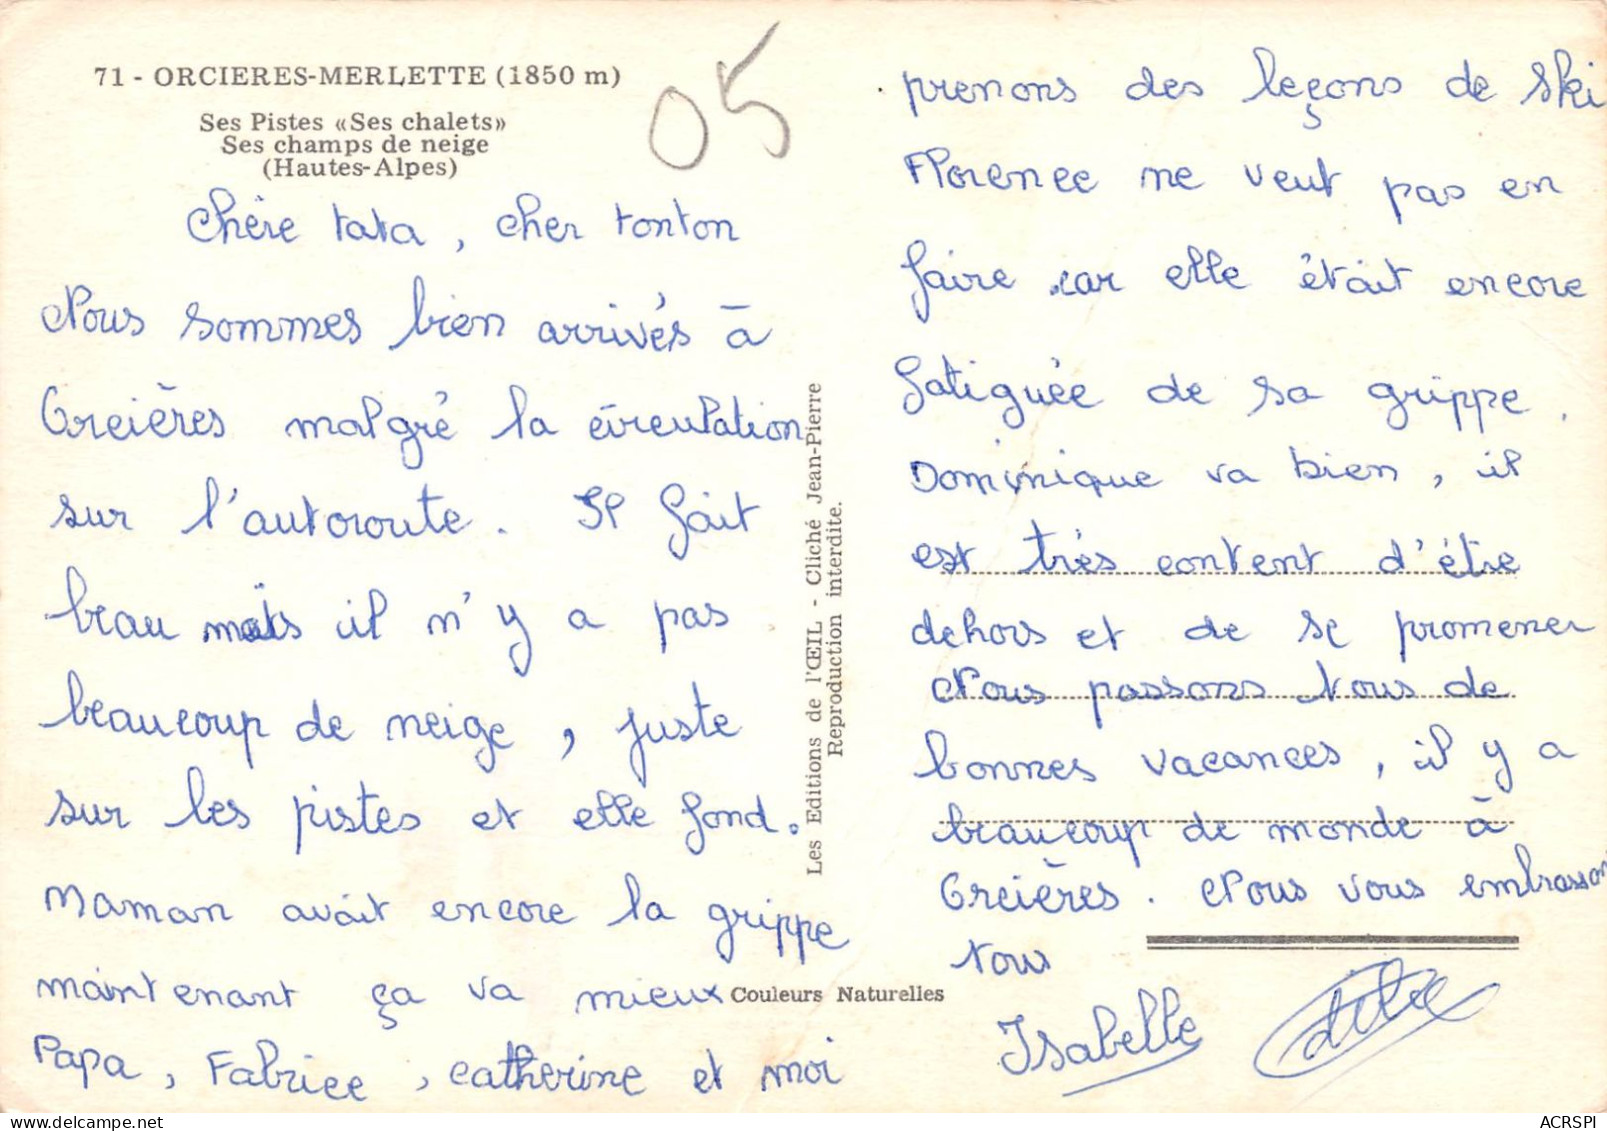 71 - ORCIERES-MERLETTE (1850 m)
Ses Pistes «Ses chalets»
Ses champs de neige
(Hautes-Alpes)
05
Chère tata, cher tonton
Nous sommes bien arrivés à
Orcières malgré la circulation
sur l'autoroute. Il fait
beau mais il n'y a pas
beaucoup de neige, juste
sur les pistes et elle fond.
Maman avait encore la grippe
maintenant ça va mieux
Papa, Fabrice, catherine et moi
Les Editions de l'ŒIL - Cliché Jean-Pierre
Reproduction interdite.
Couleurs Naturelles
prenons des leçons de ski
Florence ne veut pas en
faire car elle était encore
fatiguée de sa grippe.
Dominique va bien, il
est très content d'être
dehors et de se promener
Nous passons tous de
bonnes vacances, il y a
beaucoup de monde à
Orcières. Nous vous embrasson
tous
Isabelle
ACRSPI